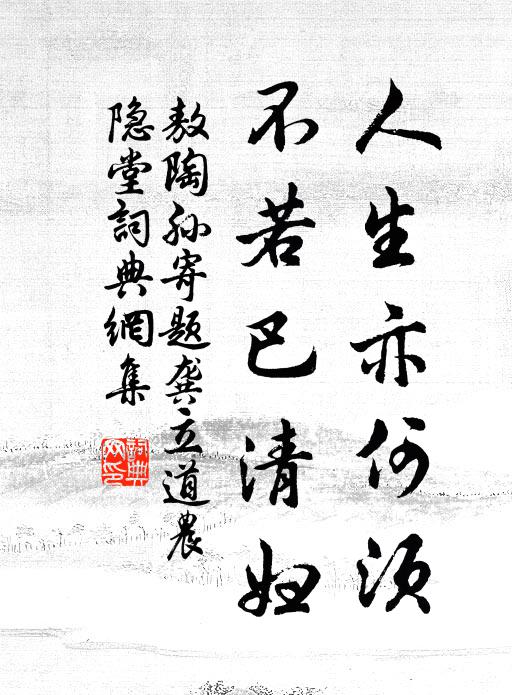 人生亦何须
不若巴清妇
敖陶孙寄题龚立道農
隐堂詞典網集
詞典
网印